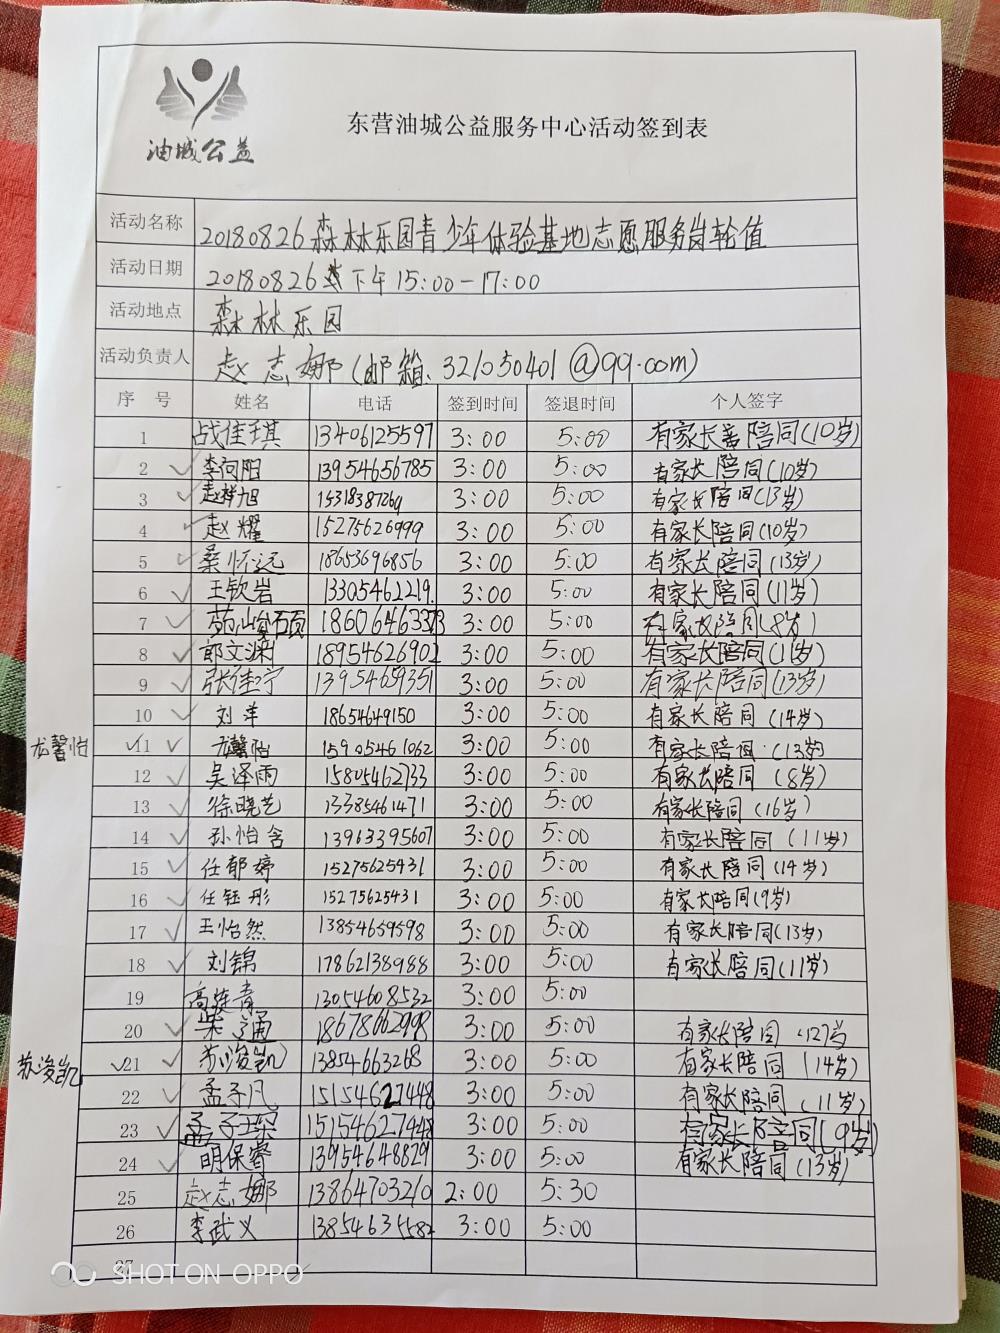 油城公益
东营油城公益服务中心活动签到表
活动名称 20180826森林乐园青少年体验基地志愿服务岗轮值
活动日期 20180826 下午15:00-17:00
活动地点 森林乐园
活动负责人 赵志娜(邮箱:321050401@qq.com)
序号 姓名 电话 签到时间 签退时间 个人签字
1 战佳琪 13406125597 3:00 5:00 有家长陪同(10岁)
2 李向阳 13954656785 3:00 5:00 有家长陪同(10岁)
3 赵梓旭 3:00 5:00 有家长陪同(13岁)
4 赵耀 15275626999 3:00 5:00 有家长陪同(10岁)
5 桑怀远 18653696856 3:00 5:00 有家长陪同(13岁)
6 王钦岩 13305462219 3:00 5:00 有家长陪同(11岁)
7 3:00 5:00 有家长陪同(8岁)
8 郎文渊 18954626902 3:00 5:00 有家长陪同(11岁)
9 张佳宁 13954659351 3:00 5:00 有家长陪同(13岁)
10 刘沣 18654649150 3:00 5:00 有家长陪同(14岁)
龙馨怡 11 龙馨怡 15905461062 3:00 5:00 有家长陪同(13岁)
12 吴泽雨 15805462733 3:00 5:00 有家长陪同(8岁)
13 徐晓艺 13385461471 3:00 5:00 有家长陪同(16岁)
14 孙怡含 13963395607 3:00 5:00 有家长陪同(11岁)
15 任郁婷 15275625431 3:00 5:00 有家长陪同(14岁)
16 任钰彤 15275625431 3:00 5:00 有家长陪同(9岁)
17 王怡然 13854659598 3:00 5:00 有家长陪同(13岁)
18 刘锦 17862138988 3:00 5:00 有家长陪同(11岁)
19 高建青 13054608532 3:00 5:00
20 柴通 18678662998 3:00 5:00 有家长陪同(12岁)
苏浚凯 21 苏浚凯 13854663268 3:00 5:00 有家长陪同(14岁)
22 孟子凡 15154627448 3:00 5:00 有家长陪同(11岁)
23 孟子琛 15154627448 3:00 5:00 有家长陪同(9岁)
24 明保睿 13954648829 3:00 5:00 有家长陪同(13岁)
25 赵志娜 13864703210 2:00 5:30
26 李武义 13854635582 3:00 5:00
27
SHOT ON OPPO